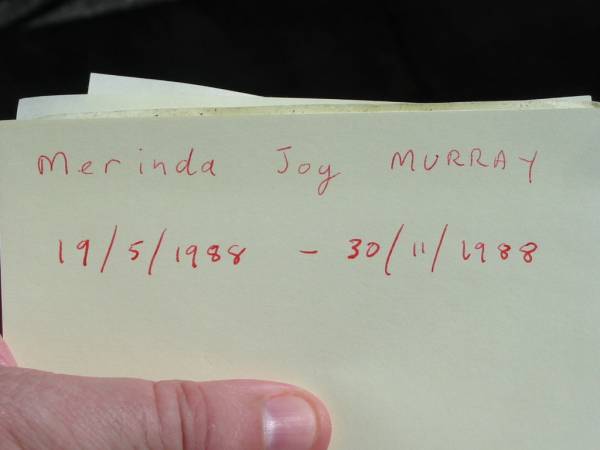 Merinda Joy MURRAY
19/5/1988 - 30/11/1988